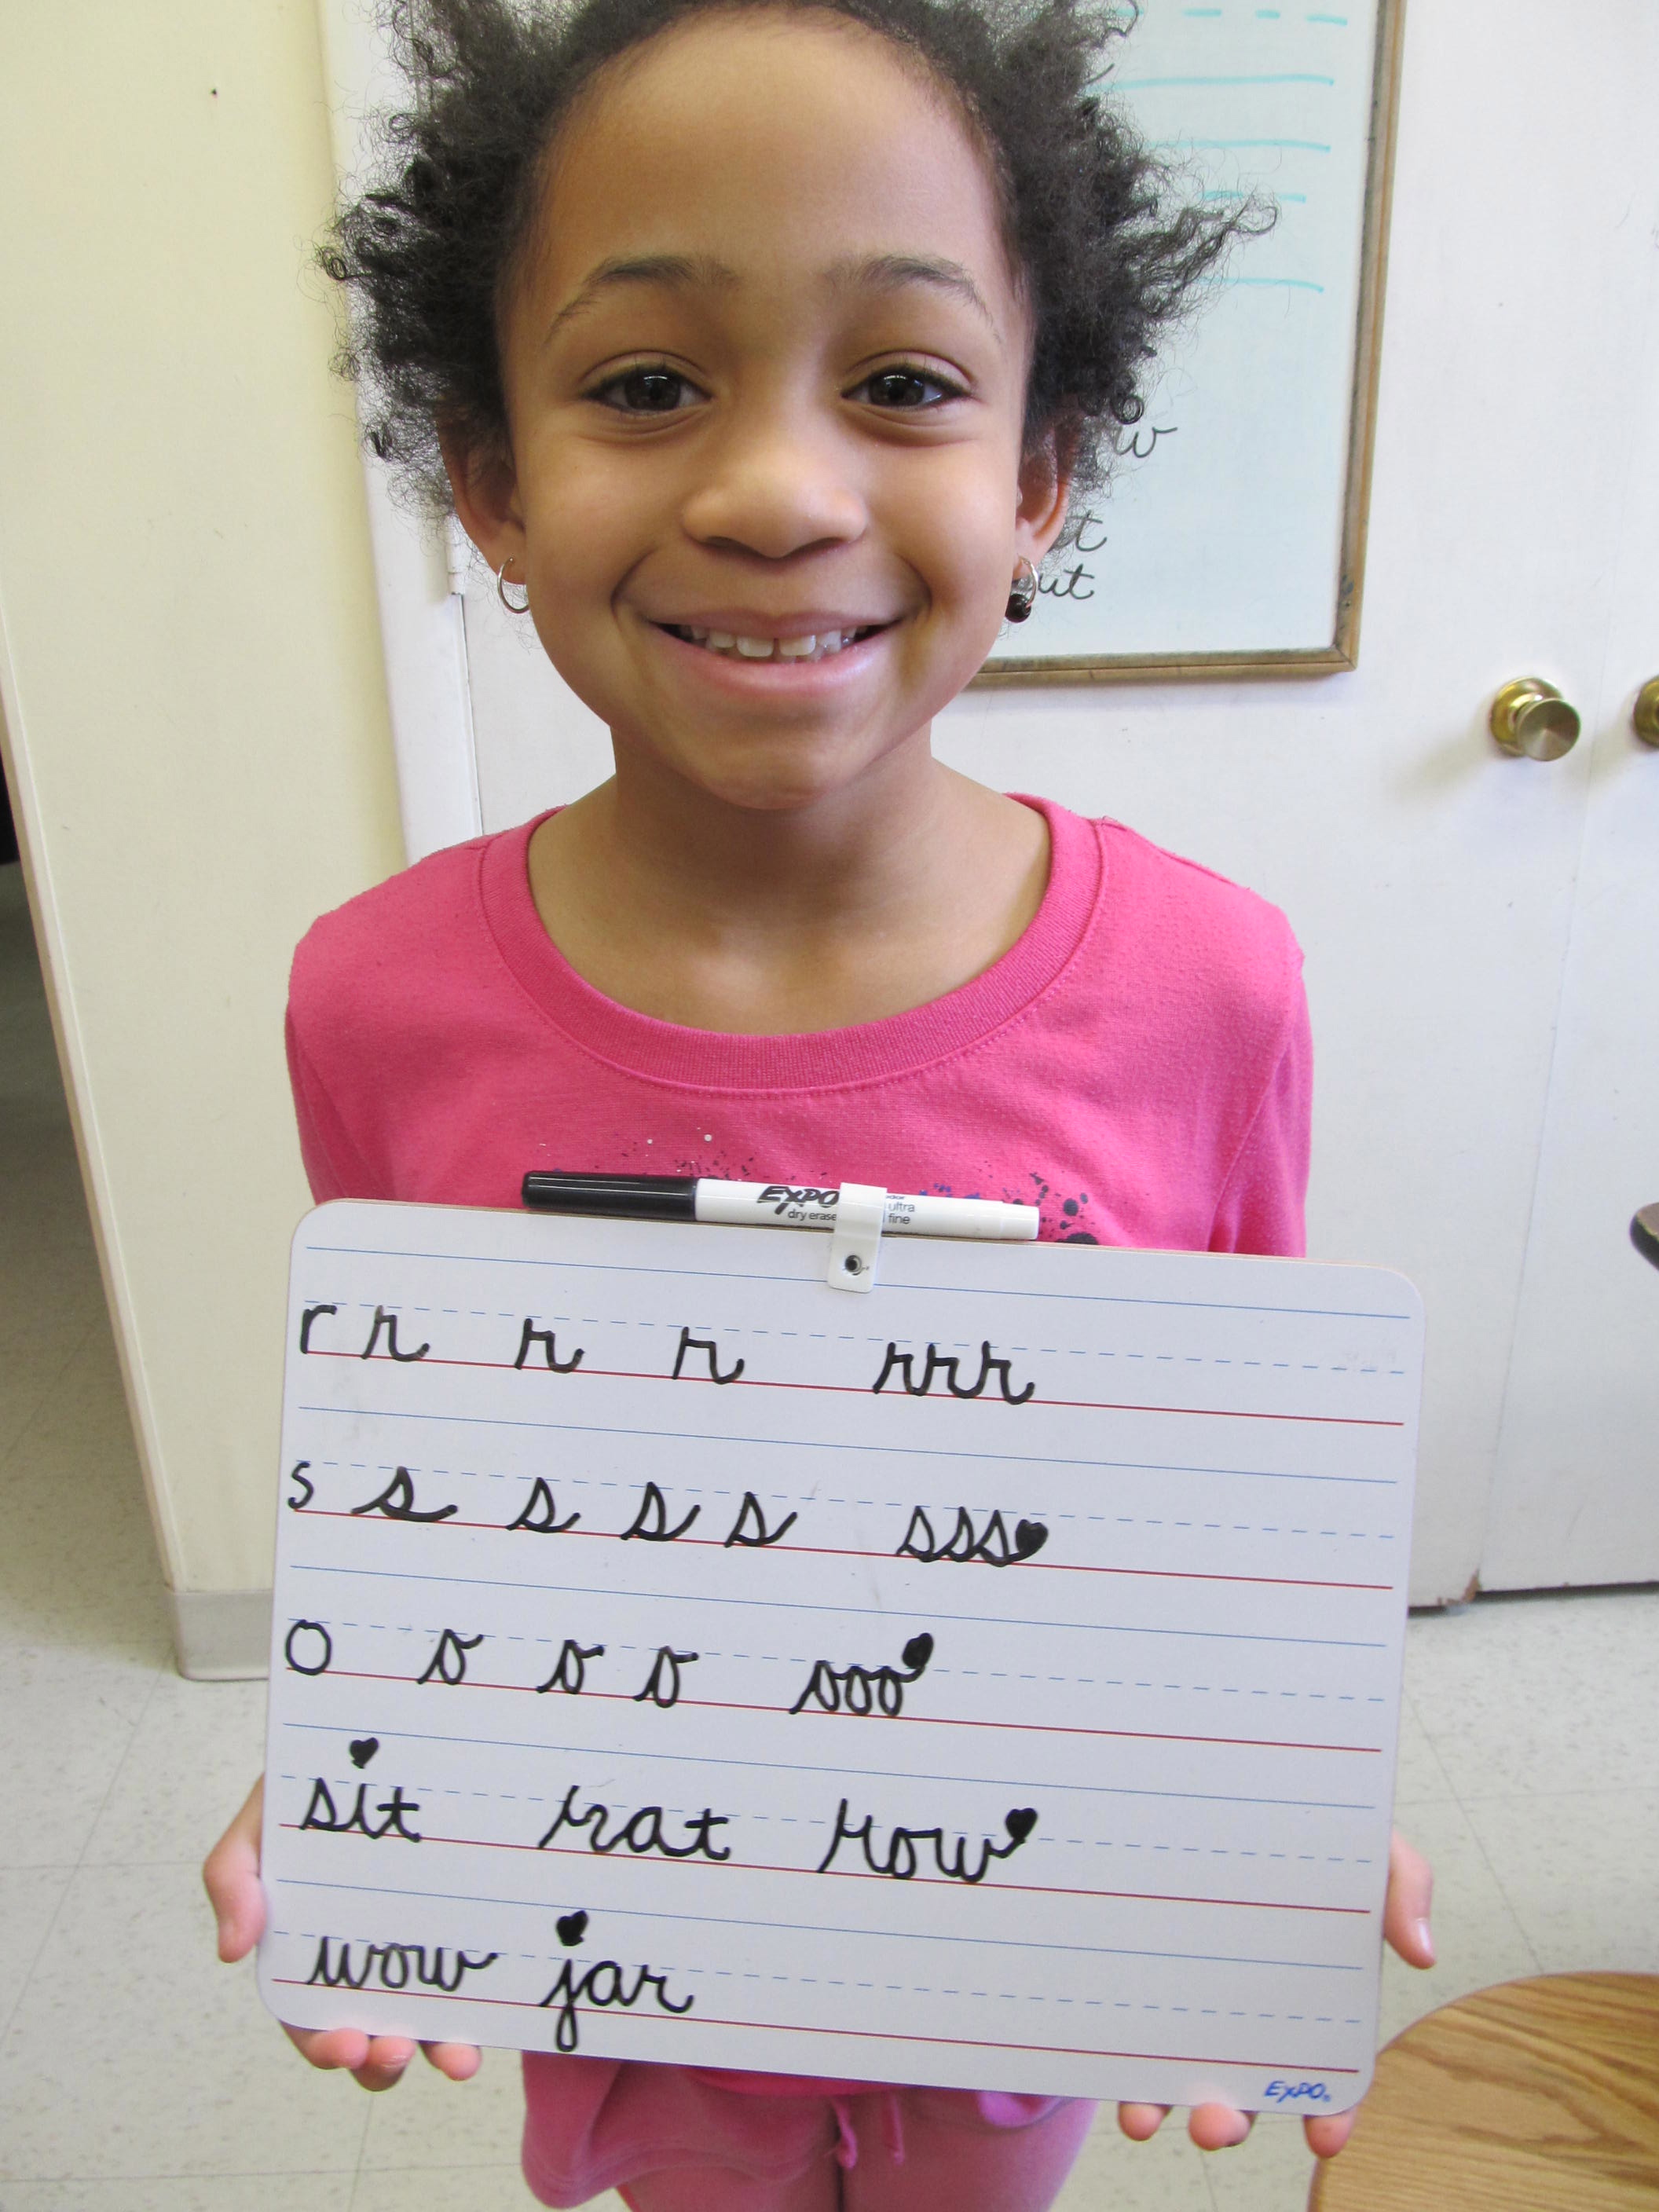 w
t
ut
EXPO
dry erase ultra
fine
r r r r rrr
s s s s s sss
o o o o ooo
sit rat row
wow jar
EXPO